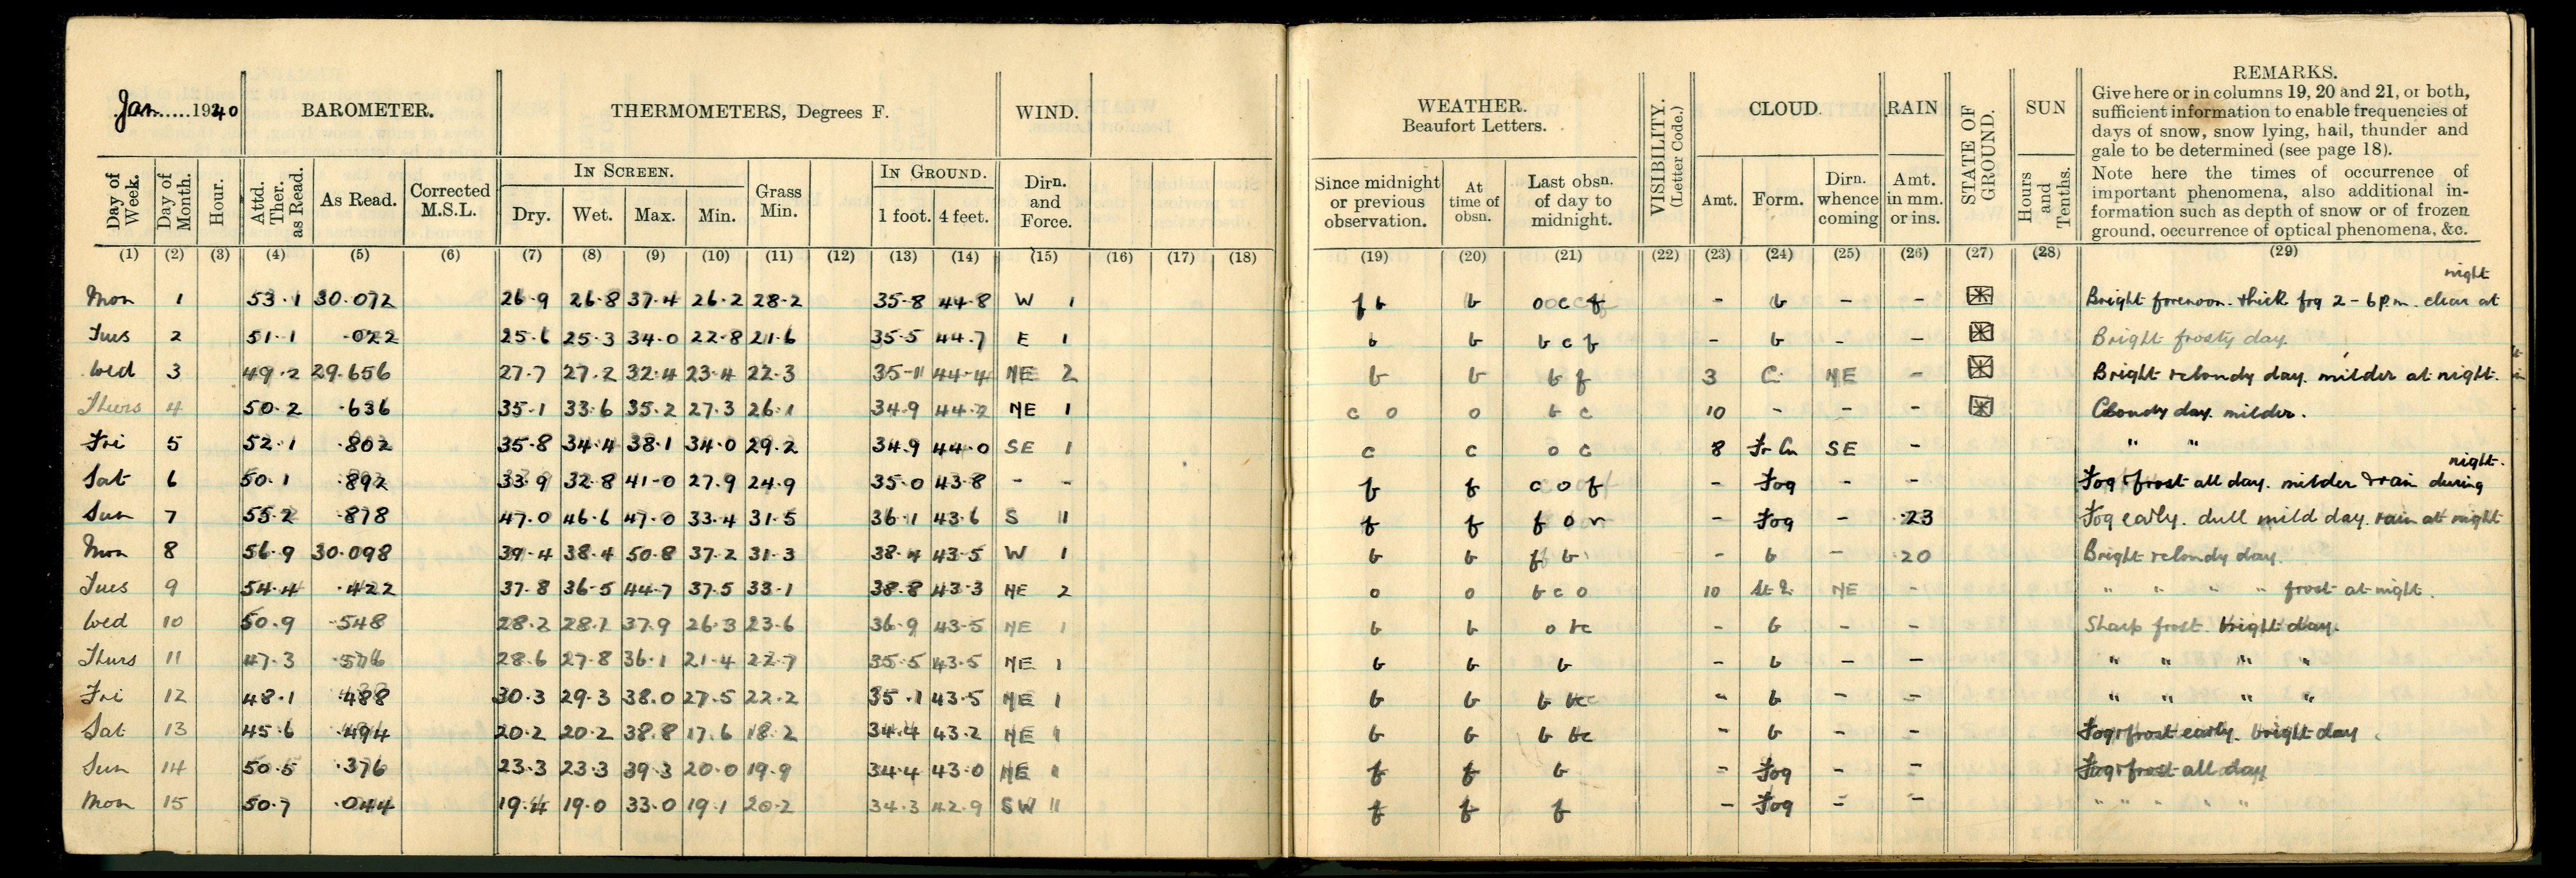 Jan. 1940 BAROMETER. THERMOMETERS, Degrees F. WIND. WEATHER. Beaufort Letters. VISIBILITY. (Letter Code.) CLOUD. RAIN STATE OF GROUND. SUN REMARKS.
Give here or in columns 19, 20 and 21, or both,
sufficient information to enable frequencies of
days of snow, snow lying, hail, thunder and
gale to be determined (see page 18).
Note here the times of occurrence of
important phenomena, also additional in-
formation such as depth of snow or of frozen
ground, occurrence of optical phenomena, &c.
Day of Week. Day of Month. Hour. Attd. Ther. as Read. As Read. Corrected M.S.L. IN SCREEN. Dry. Wet. Max. Min. Grass Min. IN GROUND. 1 foot. 4 feet. Dirn. and Force. Since midnight or previous observation. At time of obsn. Last obsn. of day to midnight. Amt. Form. Dirn. whence coming Amt. in mm. or ins. Hours and Tenths.
(1) (2) (3) (4) (5) (6) (7) (8) (9) (10) (11) (12) (13) (14) (15) (16) (17) (18) (19) (20) (21) (22) (23) (24) (25) (26) (27) (28) (29)
Mon 1 53.1 30.072 26.9 26.8 37.4 26.2 28.2 35.8 44.8 W 1 f b b o c c f - b - - Bright forenoon. thick fog 2-6 p.m. clear at night
Tues 2 51.1 .022 25.6 25.3 34.0 22.8 21.6 35.5 44.7 E 1 b b b c f - b - - Bright frosty day.
Wed 3 49.2 29.656 27.7 27.2 32.4 23.4 22.3 44.4 NE 2 b b b f 3 C. NE - Bright & cloudy day. milder at night.
Thurs 4 50.2 .636 35.1 33.6 35.2 27.3 26.1 34.9 44.2 NE 1 c o o b c 10 - - - Cloudy day. milder.
Fri 5 52.1 .802 35.8 34.4 38.1 34.0 29.2 34.9 44.0 SE 1 c c o c 8 Fr Cu SE - " "
Sat 6 50.1 .892 33.9 32.8 41.0 27.9 24.9 35.0 43.8 - - f f c o f - Fog - - Fog & frost all day. milder & rain during night.
Sun 7 55.2 .878 47.0 46.6 47.0 33.4 31.5 36.1 43.6 S 11 f f f o r - Fog - .23 Fog early. dull mild day. rain at night
Mon 8 56.9 30.098 39.4 38.4 50.8 37.2 31.3 38.4 43.5 W 1 b b f b - b - .20 Bright & cloudy day.
Tues 9 54.4 .422 37.8 36.5 44.7 37.5 33.1 38.8 43.3 NE 2 o o b c o 10 NE - " " " " frost at night.
Wed 10 50.9 .548 28.2 28.1 37.9 26.3 23.6 36.9 43.5 NE 1 b b o bc - b - - Sharp frost. bright day.
Thurs 11 47.3 .576 28.6 27.8 36.1 21.4 22.7 35.5 43.5 NE 1 b b b - b - - " " " "
Fri 12 48.1 .488 30.3 29.3 38.0 27.5 22.2 35.1 43.5 NE 1 b b b bc - b - - " " " "
Sat 13 45.6 .494 20.2 20.2 38.8 17.6 18.2 34.4 43.2 NE 1 b b b bc - b - - Fog & frost early. bright day.
Sun 14 50.5 .376 23.3 23.3 39.3 20.0 19.9 34.4 43.0 NE 1 f f b - Fog - - Fog & frost all day
Mon 15 50.7 .044 19.4 19.0 33.0 19.1 20.2 34.3 42.9 SW 11 f f f - Fog - - " " " " "